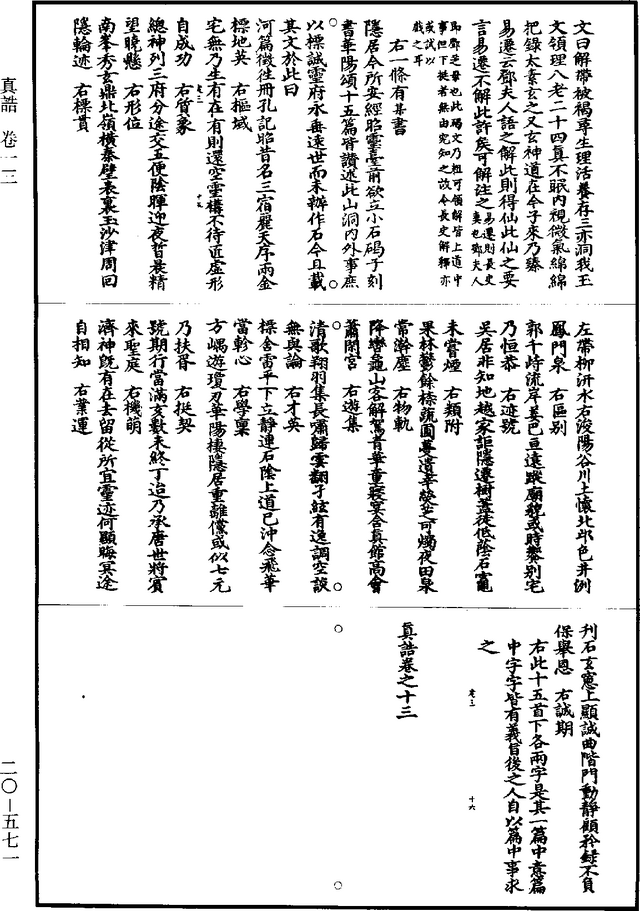 真誥 卷一三
二〇—五七一
文曰解帶被褐尋生理活養存三亦洞我玉
文領理八老二十四真不眠內視微氣綿綿
把錄太素玄之又玄神道在今子來乃臻
易遷云鄧夫人語之解此則得仙此仙之要
言易遷不解此許矣可解注之易遷則長史妻也鄧夫人
即鄧芝母也此碣文乃粗可領解皆上道中
事但下挺者無由究知之故令長史解釋亦
或試以
戲之耳
右一條有某書
隱居今所安經昭靈臺前欲立小石碣子刻
書華陽頌十五篇皆讚述此山洞內外事庶
以標誠靈府永垂遠世而未辦作石今且載
其文於此曰
河篇徵往冊孔記昭昔名三宿麗天序兩金
標地英 右樞域
宅無乃生有在有則還空靈構不待匠虛形
自成功 右質象
總神列三府分途交五便陰暉迎夜晳晨精
望曉懸 右形位
南峯秀玄鼎北嶺橫秦璧表裏玉沙津周回
隱輪迹 右標貫
左帶柳汧水右浚陽谷川土懷北邙色井例
鳳門泉 右區別
郭千峙流岸姜巴亘遠蹤廟貌或時饗別宅
乃恒恭 右迹號
吳居非知地越家詎隱遷樹蓋徒低蔭石竈
未嘗煙 右類附
果林鬱餘柹蔬圃蔓遺辛熒芝可燭夜田泉
常瀚塵 右物軌
降轡龜山客解駕青華童寢宴含真館高會
蕭閑宮 右遊集
清歌翔羽集長嘯歸雲翻子絃有逸調空談
無與論 右才英
標舍雷平下立靜連石陰上道已沖念飛華
當軫心 右學稟
方嵎遊瓊刃華陽棲隱居重離儻或似七元
乃扶胥 右挺契
號期行當滿亥數未終丁迨乃承唐世將賓
來聖庭 右機萌
濟神既有在去留從所宜靈迹何顯晦冥途
自相知 右業運
刊石玄窻上顯誠曲階門動靜顧矜錄不負
保舉恩 右誠期
右此十五首下各兩字是其一篇中意篇
中字字皆有義旨後之人自以篇中事求
之
真誥卷之十三